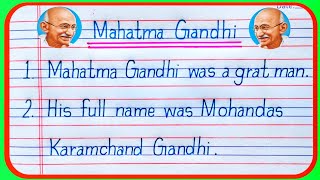 Date:....
Mahatma Gandhi
1. Mahatma Gandhi was a grat man.
2. His full name was Mohandas
Karamchand Gandhi.